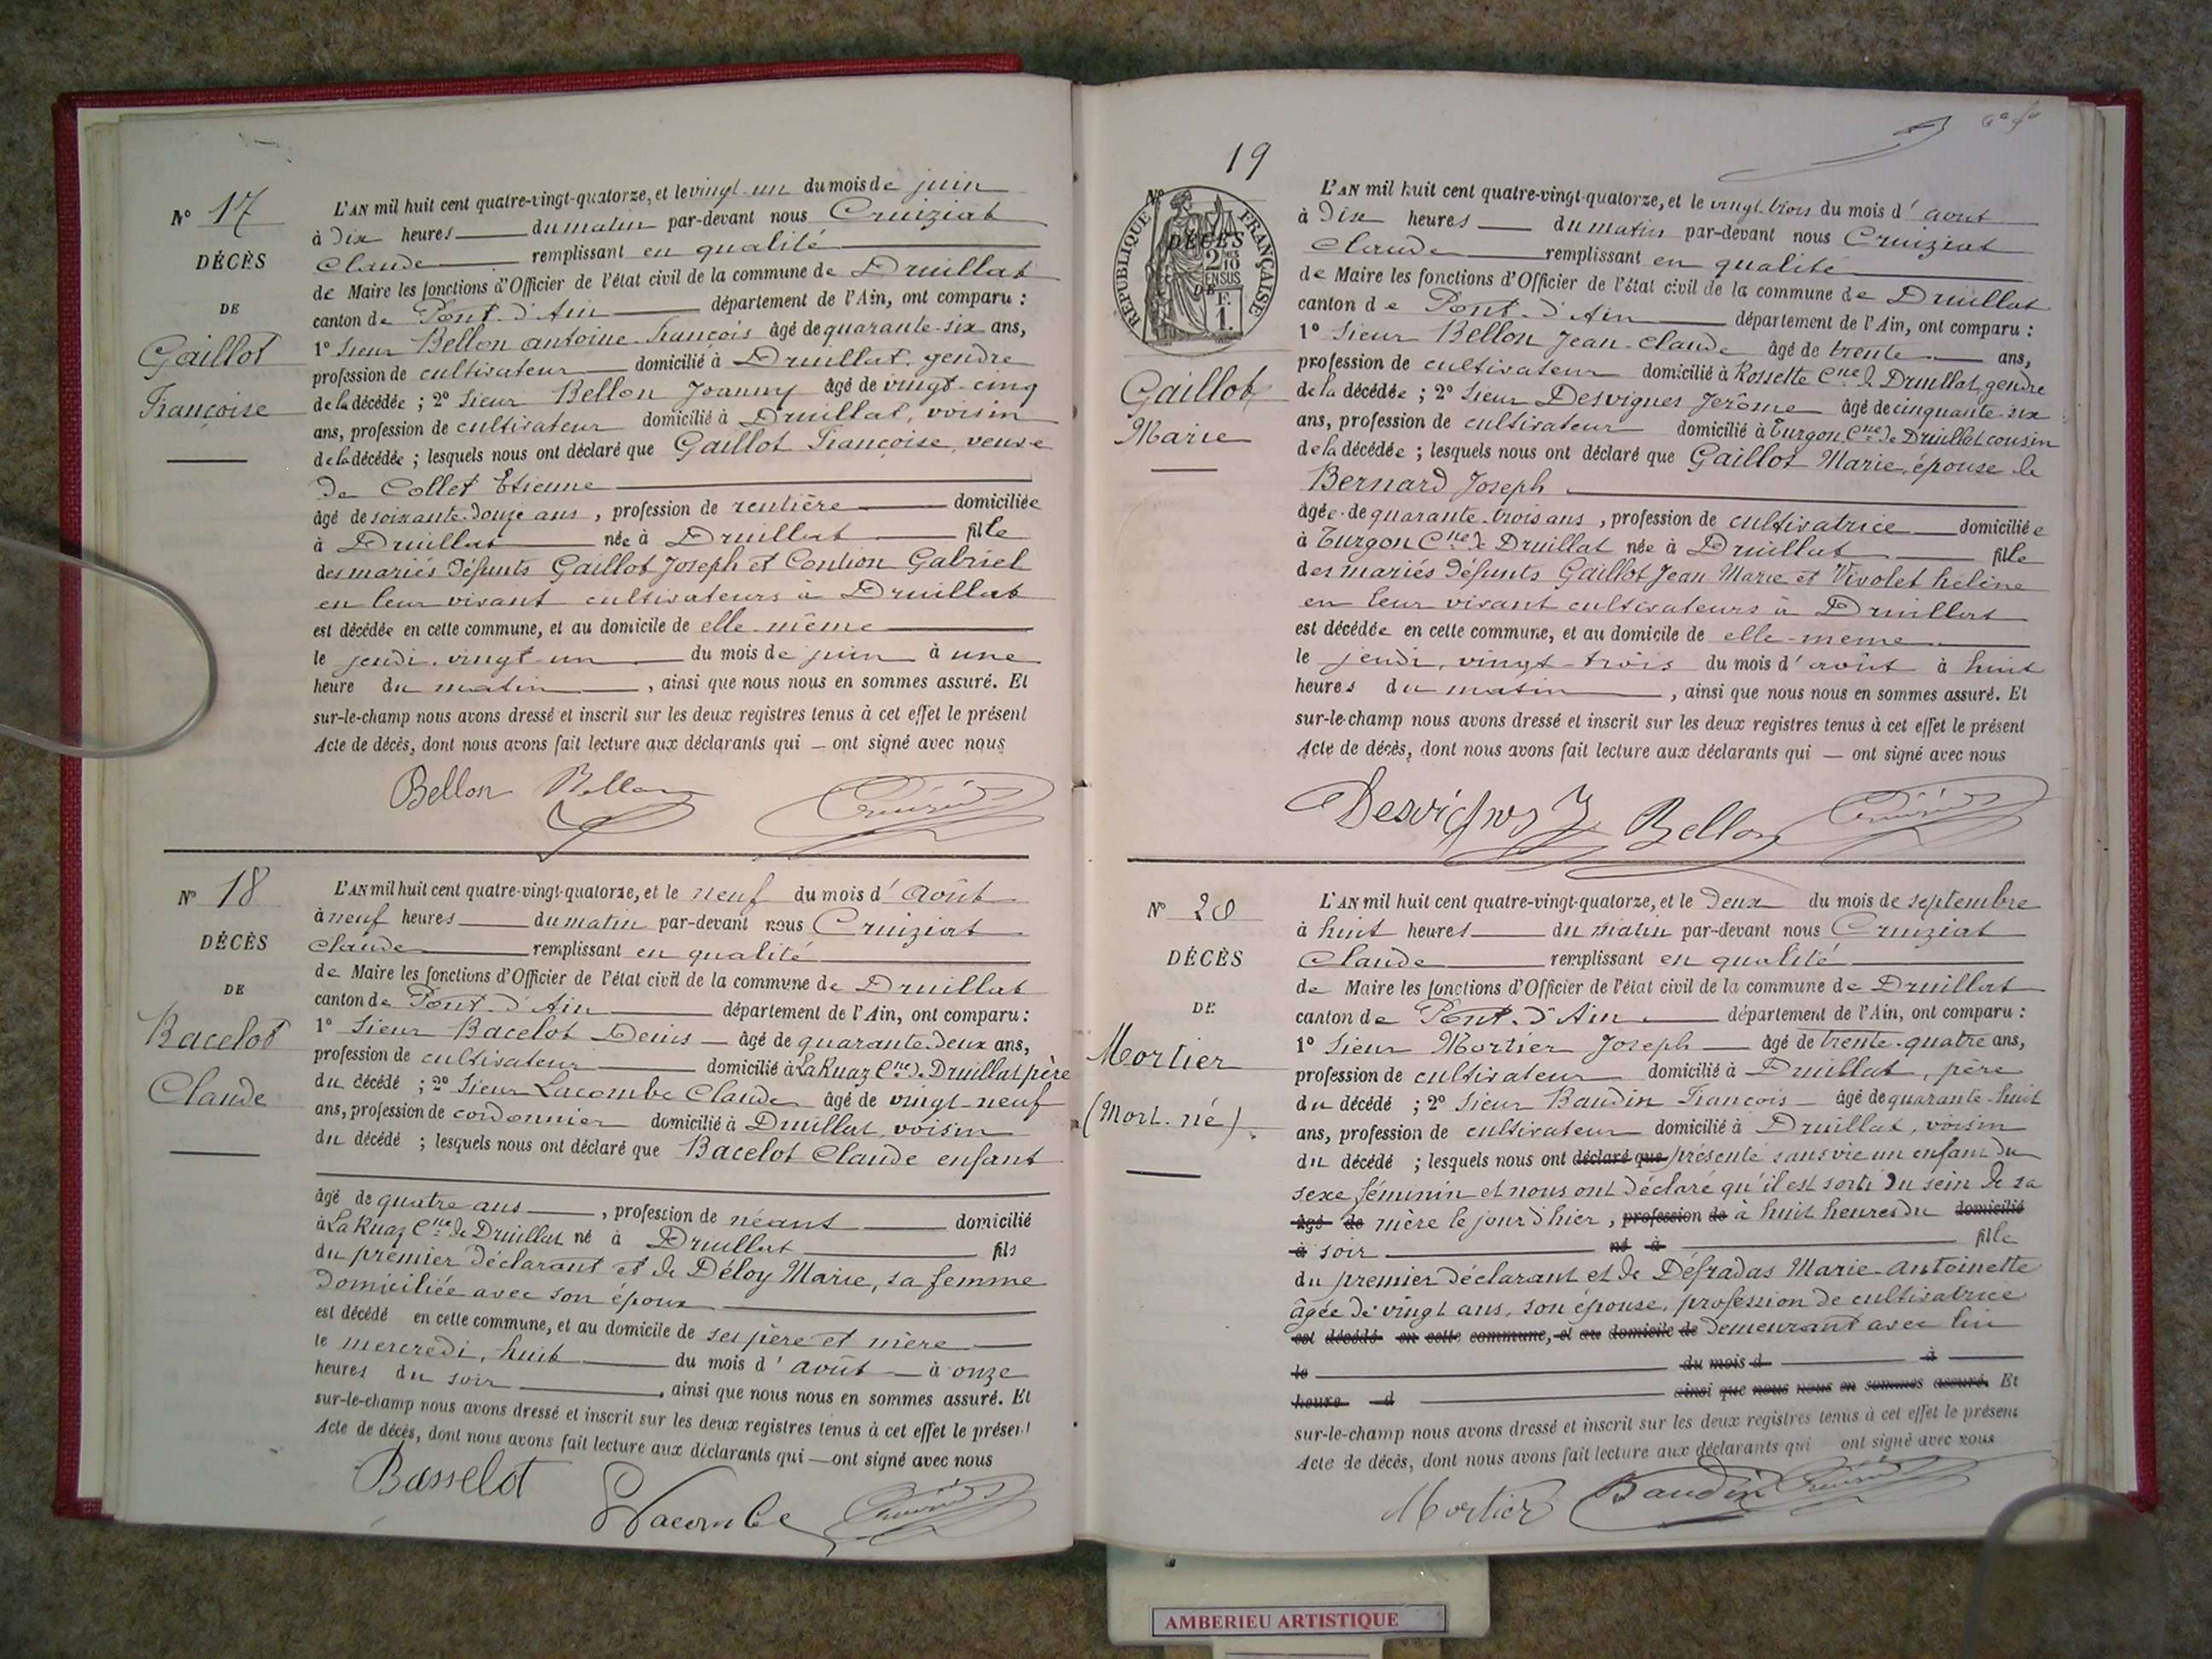 N° 17
DÉCÈS
DE
Gaillot
Françoise
L'AN mil huit cent quatre-vingt-quatorze, et le vingt-un du mois de juin
à dix heures du matin par-devant nous Cruiziat
Claude remplissant en qualité
de Maire les fonctions d'Officier de l'état civil de la commune de Druillat
canton de Pont-d'Ain département de l'Ain, ont comparu :
1° Sieur Bellon antoine-françois âgé de quarante-six ans,
profession de cultivateur domicilié à Druillat, gendre
de la décédée ; 2° Sieur Bellon Joanny âgé de vingt-cinq
ans, profession de cultivateur domicilié à Druillat, voisin
de la décédée ; lesquels nous ont déclaré que Gaillot Françoise, veuve
de Collet Etienne
âgé de soixante-douze ans, profession de rentière domiciliée
à Druillat née à Druillat fille
des mariés défunts Gaillot Joseph et Gabriel
en leur vivant cultivateurs à Druillat
est décédée en cette commune, et au domicile de elle-même
le jeudi, vingt-un du mois de juin à une
heure du matin, ainsi que nous nous en sommes assuré. Et
sur-le-champ nous avons dressé et inscrit sur les deux registres tenus à cet effet le présent
Acte de décès, dont nous avons fait lecture aux déclarants qui — ont signé avec nous
Bellon Bellon
N° 18
DÉCÈS
DE
Bacelot
Claude
L'AN mil huit cent quatre-vingt-quatorze, et le neuf du mois d'Août
à neuf heures du matin par-devant nous Cruiziat
Claude remplissant en qualité
de Maire les fonctions d'Officier de l'état civil de la commune de Druillat
canton de Pont-d'Ain département de l'Ain, ont comparu :
1° Sieur Bacelot Denis — âgé de quarante-deux ans,
profession de cultivateur domicilié à La Ruaz Cne de Druillat père
du décédé ; 2° Sieur Lacombe Claude âgé de vingt-neuf
ans, profession de cordonnier domicilié à Druillat, voisin
du décédé ; lesquels nous ont déclaré que Bacelot Claude enfant
âgé de quatre ans, profession de néant domicilié
à La Ruaz Cne de Druillat né à Druillat fils
du premier déclarant et de Déloy Marie, sa femme
domiciliée avec son époux
est décédé en cette commune, et au domicile de ses père et mère
le mercredi, huit du mois d'août à onze
heures du soir, ainsi que nous nous en sommes assuré. Et
sur-le-champ nous avons dressé et inscrit sur les deux registres tenus à cet effet le présent
Acte de décès, dont nous avons fait lecture aux déclarants qui — ont signé avec nous
Basselot Lacombe
19
N°
RÉPUBLIQUE FRANÇAISE
DÉCÈS
2/10 EN SUS
DE
1 F.
Gaillot
Marie
L'AN mil huit cent quatre-vingt-quatorze, et le vingt-trois du mois d'août
à dix heures du matin par-devant nous Cruiziat
Claude remplissant en qualité
de Maire les fonctions d'Officier de l'état civil de la commune de Druillat
canton de Pont-d'Ain département de l'Ain, ont comparu :
1° Sieur Bellon Jean-Claude âgé de trente ans,
profession de cultivateur domicilié à Rossette Cne de Druillat, gendre
de la décédée ; 2° Sieur Desvignes Jérôme âgé de cinquante-six
ans, profession de cultivateur domicilié à Turgon Cne de Druillat cousin
de la décédée ; lesquels nous ont déclaré que Gaillot Marie, épouse de
Bernard Joseph
âgée de quarante-trois ans, profession de cultivatrice domiciliée
à Turgon Cne de Druillat née à Druillat fille
des mariés défunts Gaillot Jean Marie et Vivolet hélène
en leur vivant cultivateurs à Druillat
est décédée en cette commune, et au domicile de elle-même
le jeudi, vingt-trois du mois d'août à huit
heures du matin, ainsi que nous nous en sommes assuré. Et
sur-le-champ nous avons dressé et inscrit sur les deux registres tenus à cet effet le présent
Acte de décès, dont nous avons fait lecture aux déclarants qui — ont signé avec nous
Bellon
N° 20
DÉCÈS
DE
Mortier
(Mort-né)
L'AN mil huit cent quatre-vingt-quatorze, et le deux du mois de septembre
à huit heures du matin par-devant nous Cruiziat
Claude remplissant en qualité
de Maire les fonctions d'Officier de l'état civil de la commune de Druillat
canton de Pont-d'Ain département de l'Ain, ont comparu :
1° Sieur Mortier Joseph âgé de trente-quatre ans,
profession de cultivateur domicilié à Druillat, père
du décédé ; 2° Sieur Baudin François âgé de quarante-huit
ans, profession de cultivateur domicilié à Druillat, voisin
du décédé ; lesquels nous ont déclaré que présenté sans vie un enfant du
sexe féminin et nous ont déclaré qu'il est sorti du sein de sa
âgé de mère le jour d'hier, profession de à huit heures du domicilié
à soir né à fille
du premier déclarant et de Défradas Marie-Antoinette
âgée de vingt ans, son épouse, profession de cultivatrice
est décédé en cette commune, et au domicile de demeurant avec lui
le du mois d à
heure d ainsi que nous nous en sommes assuré. Et
sur-le-champ nous avons dressé et inscrit sur les deux registres tenus à cet effet le présent
Acte de décès, dont nous avons fait lecture aux déclarants qui ont signé avec nous
Mortier Baudin
AMBERIEU ARTISTIQUE